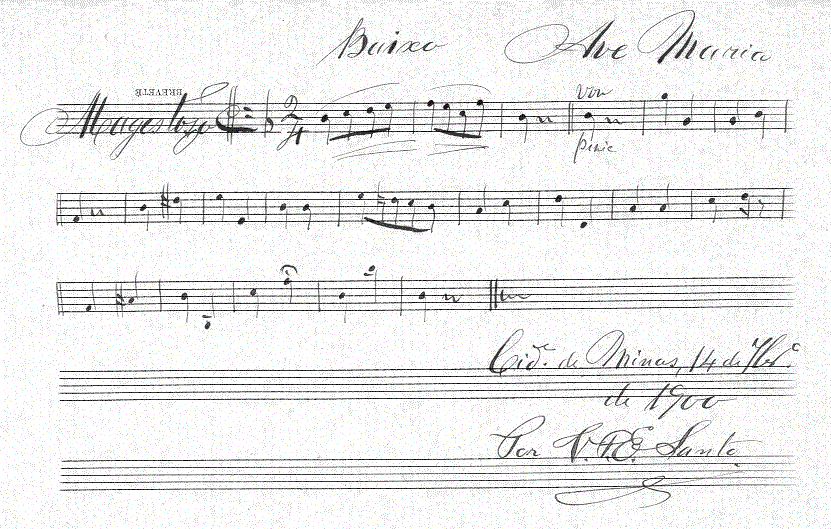 Baixo Ave Maria
BREVETÉ
Magestozo 2/4 voz
Cid.e de Minas, 14 de 7br.º
de 1900
Por V. F. E. Santo